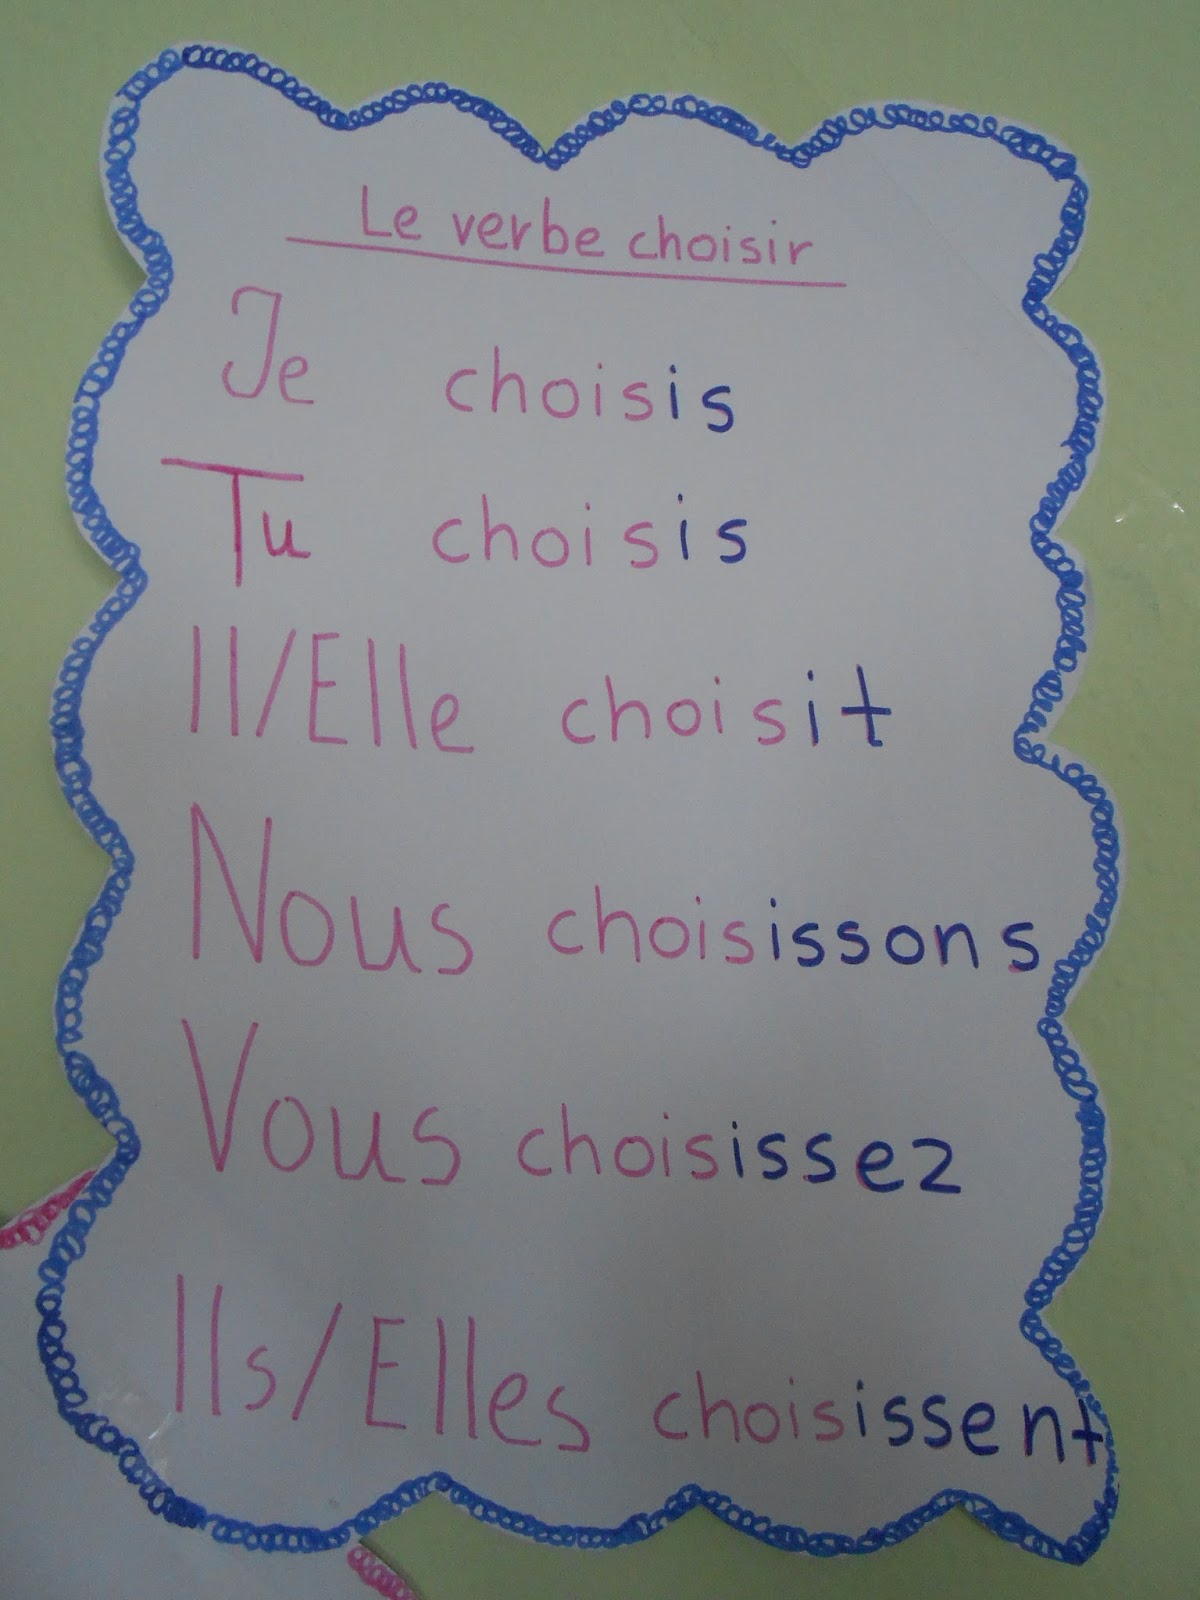 Le verbe choisir
Je choisis
Tu choisis
Il/Elle choisit
Nous choisissons
Vous choisissez
Ils/Elles choisissent